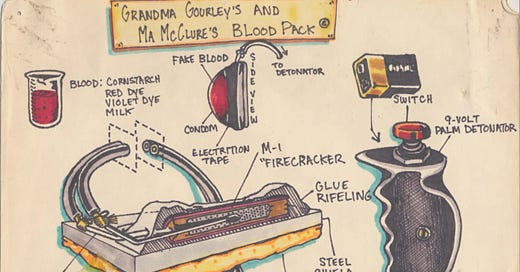 GRANDMA GOURLEY'S AND
MA MCCLURE'S BLOOD PACK ©
FAKE BLOOD
SIDE VIEW
TO
DETONATOR
BLOOD: CORNSTARCH
RED DYE
VIOLET DYE
MILK
CONDOM
SWITCH
9-VOLT
PALM DETONATOR
ELECTRITION
TAPE
M-1
"FIRECRACKER
GLUE
RIFELING
STEEL